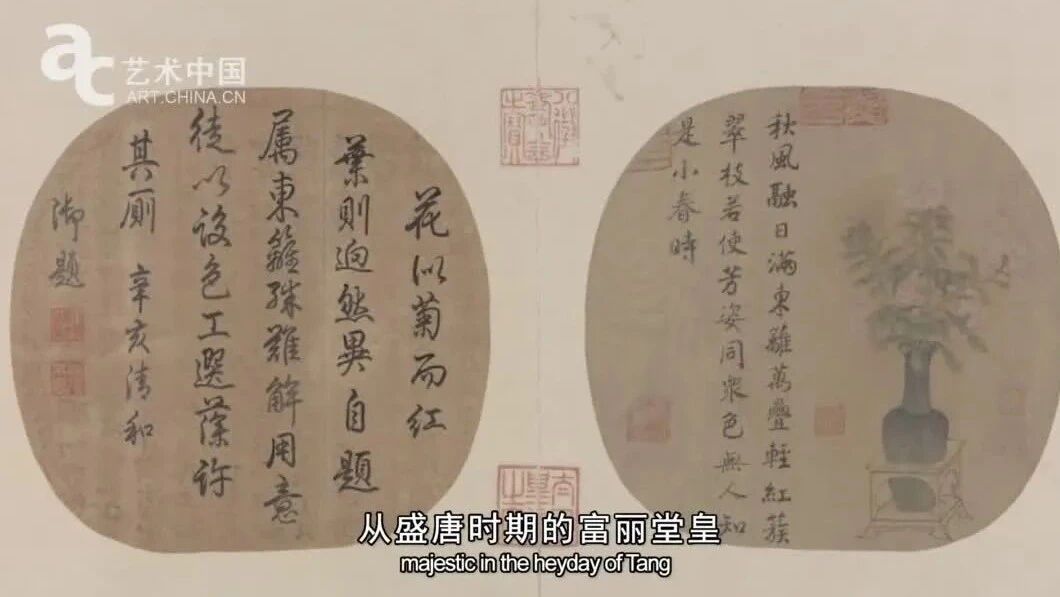 ac 艺术中国
ART.CHINA.CN
秋風融日滿東籬萬疊輕紅簇
翠枝若使芳姿同衆色無人知
是小春時
八徵耄念之寶
花似菊而紅
葉則逈然異自題
属東籬殊難解用意
徒以設色工選藻許
其厠 辛亥清和
御題
从盛唐时期的富丽堂皇
majestic in the heyday of Tang